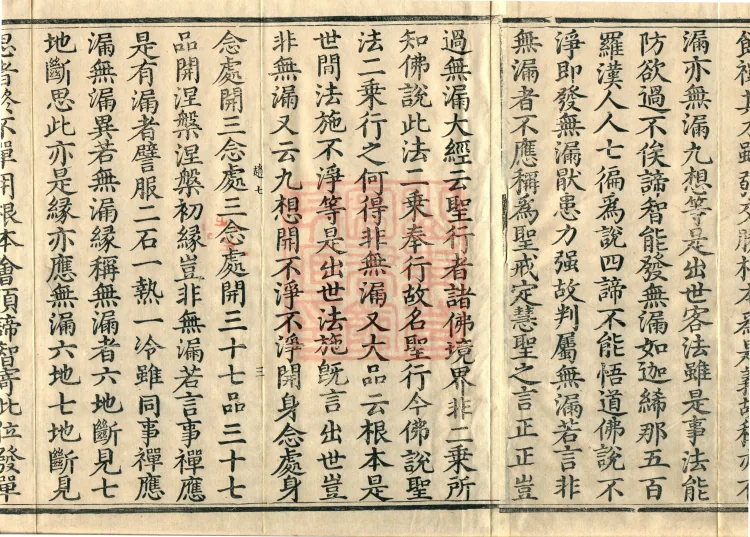 漏亦無漏九想等是出世客法雖是事法能
防欲過不俟諦智能發無漏如迦絺那五百
羅漢人人七徧爲說四諦不能悟道佛說不
淨即發無漏猒患力强故判屬無漏若言非
無漏者不應稱爲聖戒定慧聖之言正正豈
過無漏大經云聖行者諸佛境界非二乘所
知佛說此法二乘奉行故名聖行今佛說聖
法二乘行之何得非無漏又大品云根本是
世間法施不淨等是出世法施旣言出世豈
非無漏又云九想開不淨不淨開身念處身
趙七
三
念處開三念處三念處開三十七品三十七
品開涅槃涅槃初緣豈非無漏若言事禪應
是有漏者譬服二石一熱一冷雖同事禪應
漏無漏異若無漏緣稱無漏者六地斷見七
地斷思此亦是緣亦應無漏六地七地斷見
思者終不單用根本會須諦智寄此位發單